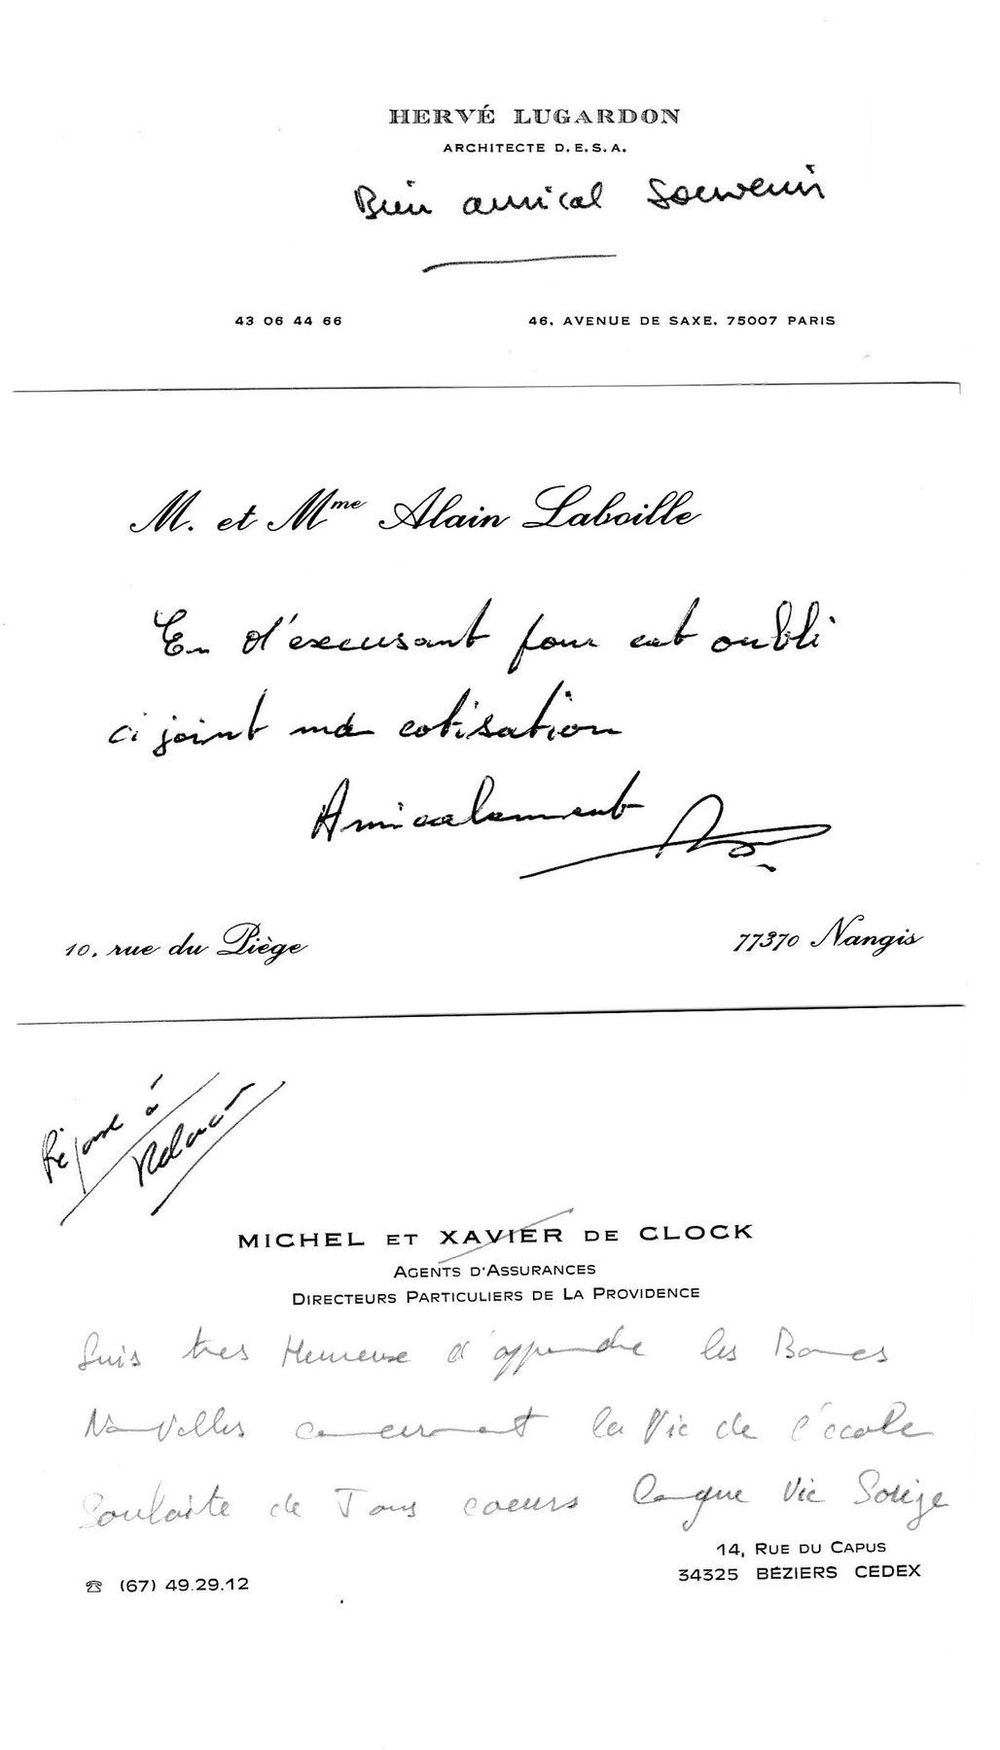 HERVÉ LUGARDON
ARCHITECTE D.E.S.A.
Bien amical Souvenir
43 06 44 66
46, AVENUE DE SAXE, 75007 PARIS
M. et Mme Alain Laboille
En m'excusant pour cet oubli
ci joint ma cotisation
Amicalement
10, rue du Piège
77370 Nangis
Réponse à
MICHEL ET XAVIER DE CLOCK
AGENTS D'ASSURANCES
DIRECTEURS PARTICULIERS DE LA PROVIDENCE
Suis tres Heureuse d'apprendre les Bonnes
Nouvelles concernant la Vie de l'école
Souhaite de Tous coeurs Longue Vie Sorèze
14, RUE DU CAPUS
☎ (67) 49.29.12
34325 BÉZIERS CEDEX